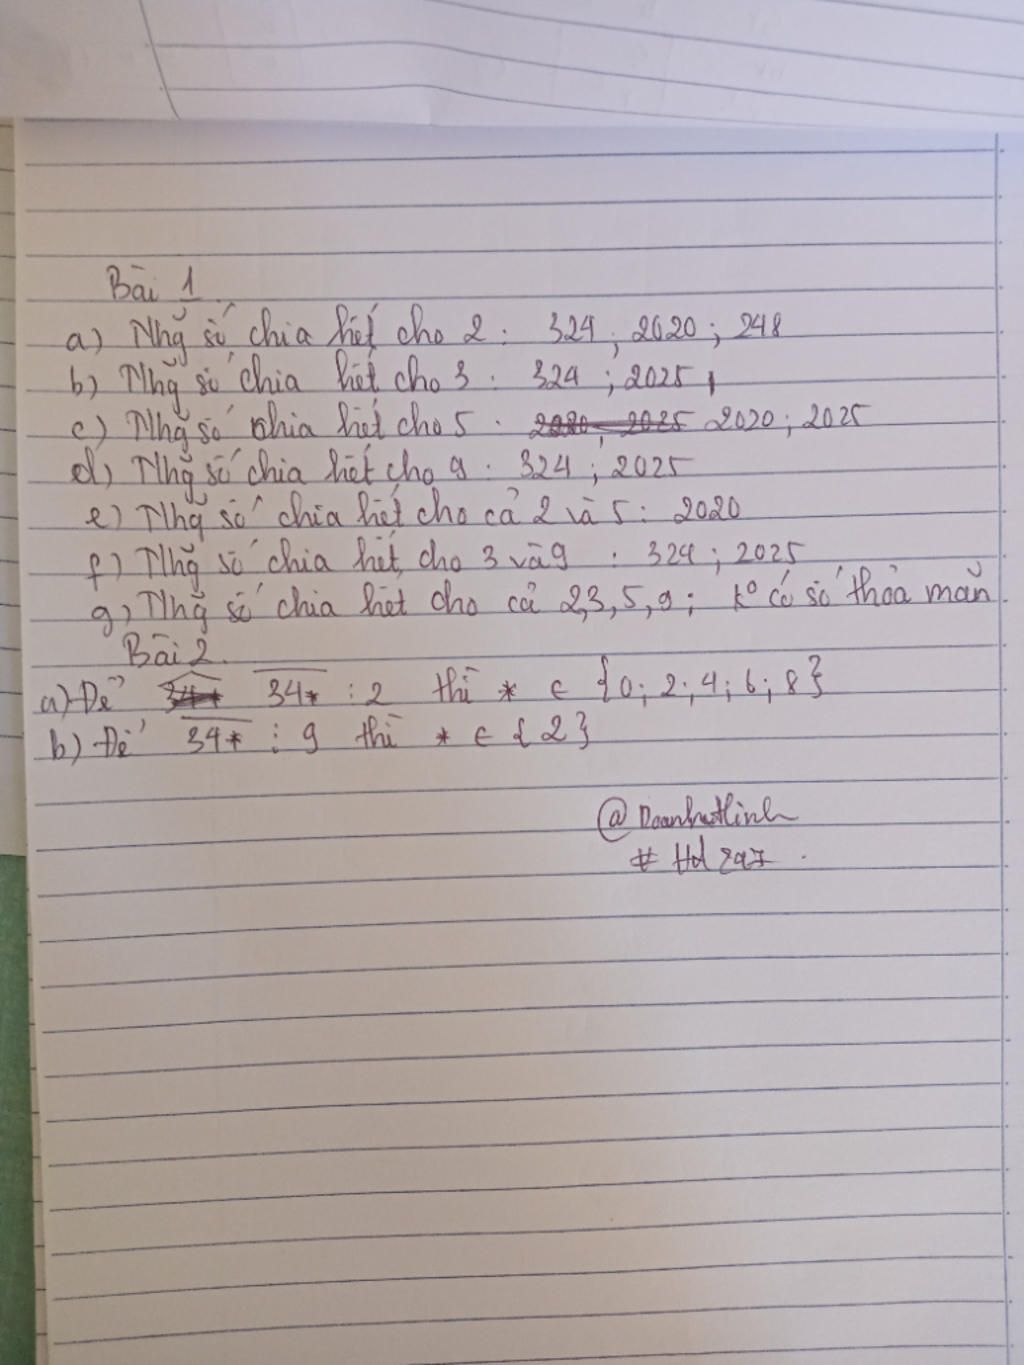 Bài 1
a) Nhg̃ số chia hết cho 2 : 324 ; 2020 ; 248
b) Nhg̃ số chia hết cho 3 : 324 ; 2025
c) Nhg̃ số chia hết cho 5 : 2020 ; 2025 2020 ; 2025
d) Nhg̃ số chia hết cho 9 : 324 ; 2025
e) Nhg̃ số chia hết cho cả 2 và 5 : 2020
f) Nhg̃ số chia hết cho 3 và 9 : 324 ; 2025
g) Nhg̃ số chia hết cho cả 2,3,5,9 ; k° có số thỏa mãn
Bài 2.
a) Để 34* 34* ⋮ 2 thì * ∈ {0; 2; 4; 6; 8}
b) Để 34* ⋮ 9 thì * ∈ {2}
@Doanhutlinh
# Hd 247